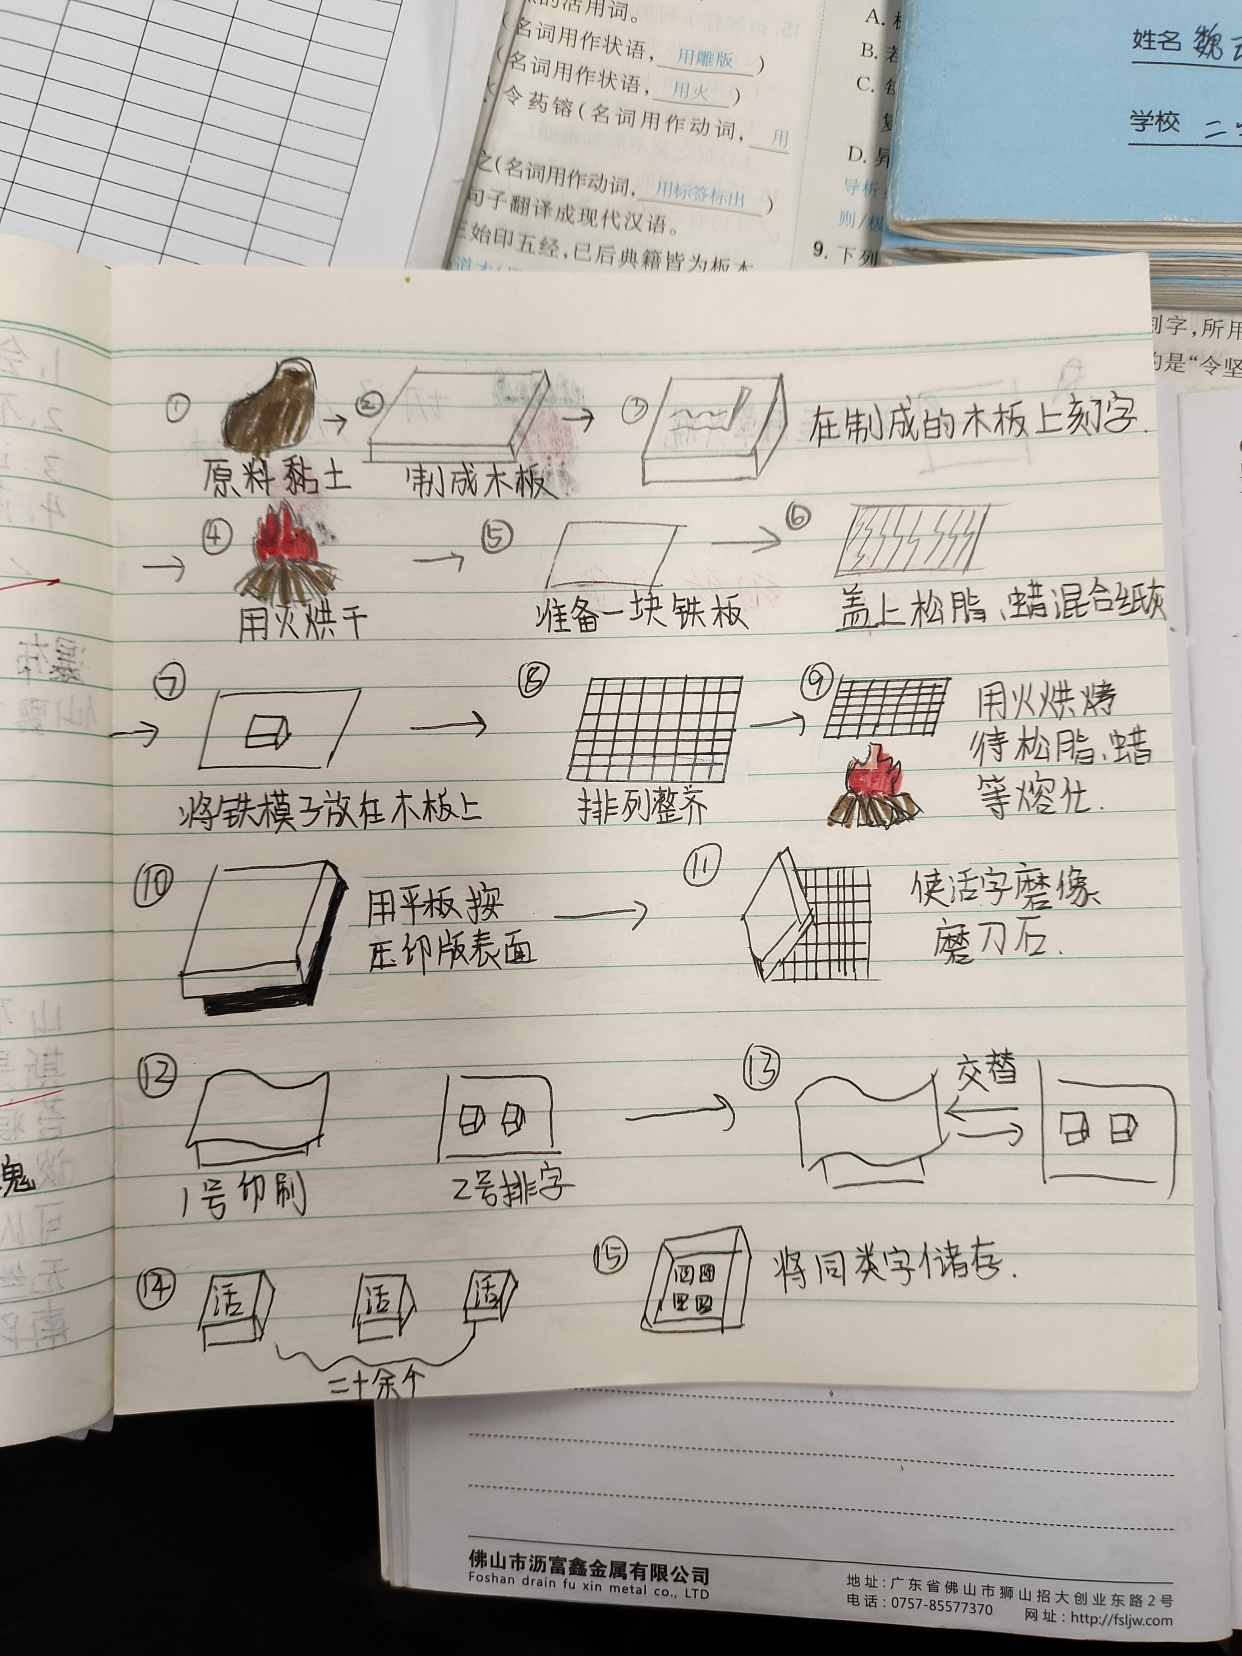 的活用词。
(名词用作状语, 用雕版 )
(名词用作状语, 用火 )
令药镕(名词用作动词, 用
之(名词用作动词, 用标签标出 )
句子翻译成现代汉语。
始印五经,已后典籍皆为板本
A.
B.
C.
D.
导析:
则/极
9. 下列
姓名 魏
学校 二
刻字,所用
的是“令坚
① → ② → ③ 在制成的木板上刻字.
原料黏土 制成木板
→ ④ → ⑤ → ⑥
用火烘干 准备一块铁板 盖上松脂、蜡混合纸灰
→ ⑦ → ⑧ → ⑨ 用火烘烤
待松脂、蜡
等熔化.
将铁模子放在木板上 排列整齐
⑩ 用平板按
压印版表面
→ ⑪ 使活字磨像
磨刀石.
⑫ → ⑬ 交替
1号印刷 2号排字
⑭ 活 活 活
二十余个
⑮ 将同类字储存.
佛山市沥富鑫金属有限公司
Foshan drain fu xin metal co., LTD
地址:广东省佛山市狮山招大创业东路2号
电话:0757-85577370 网址:http://fsljw.com